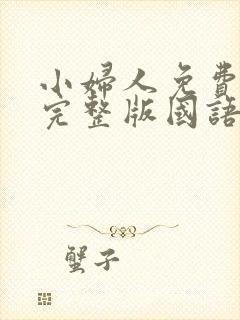 小婦人免費
完整版國語
蟹子